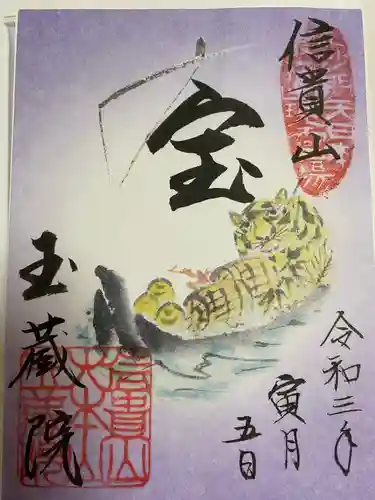 信貴山
宝
令和三年
寅月
五日
玉蔵院
信貴山
大本山
玉蔵院